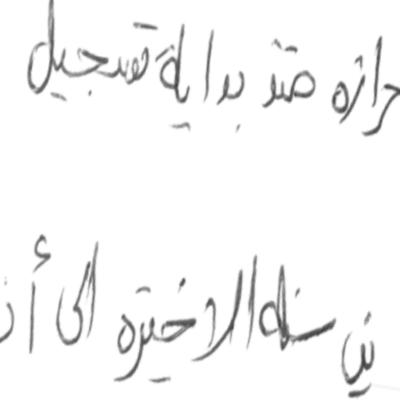 حرارة منذ بداية تسجيل
ين سنه الاخيره الى أن